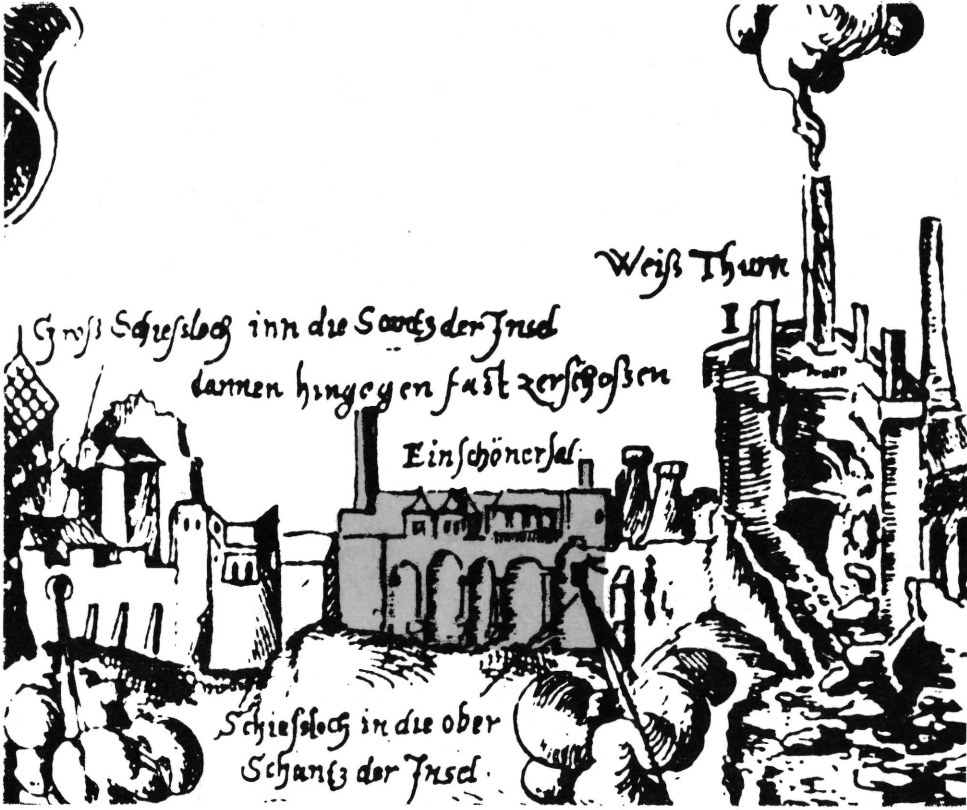 Weiß Thurn
I
Groß Schiessloch inn die Scantz der Insel
dannen hingegen fast zerschoßen
Ein schöner sal.
Schiessloch in die ober
Schantz der Insel.